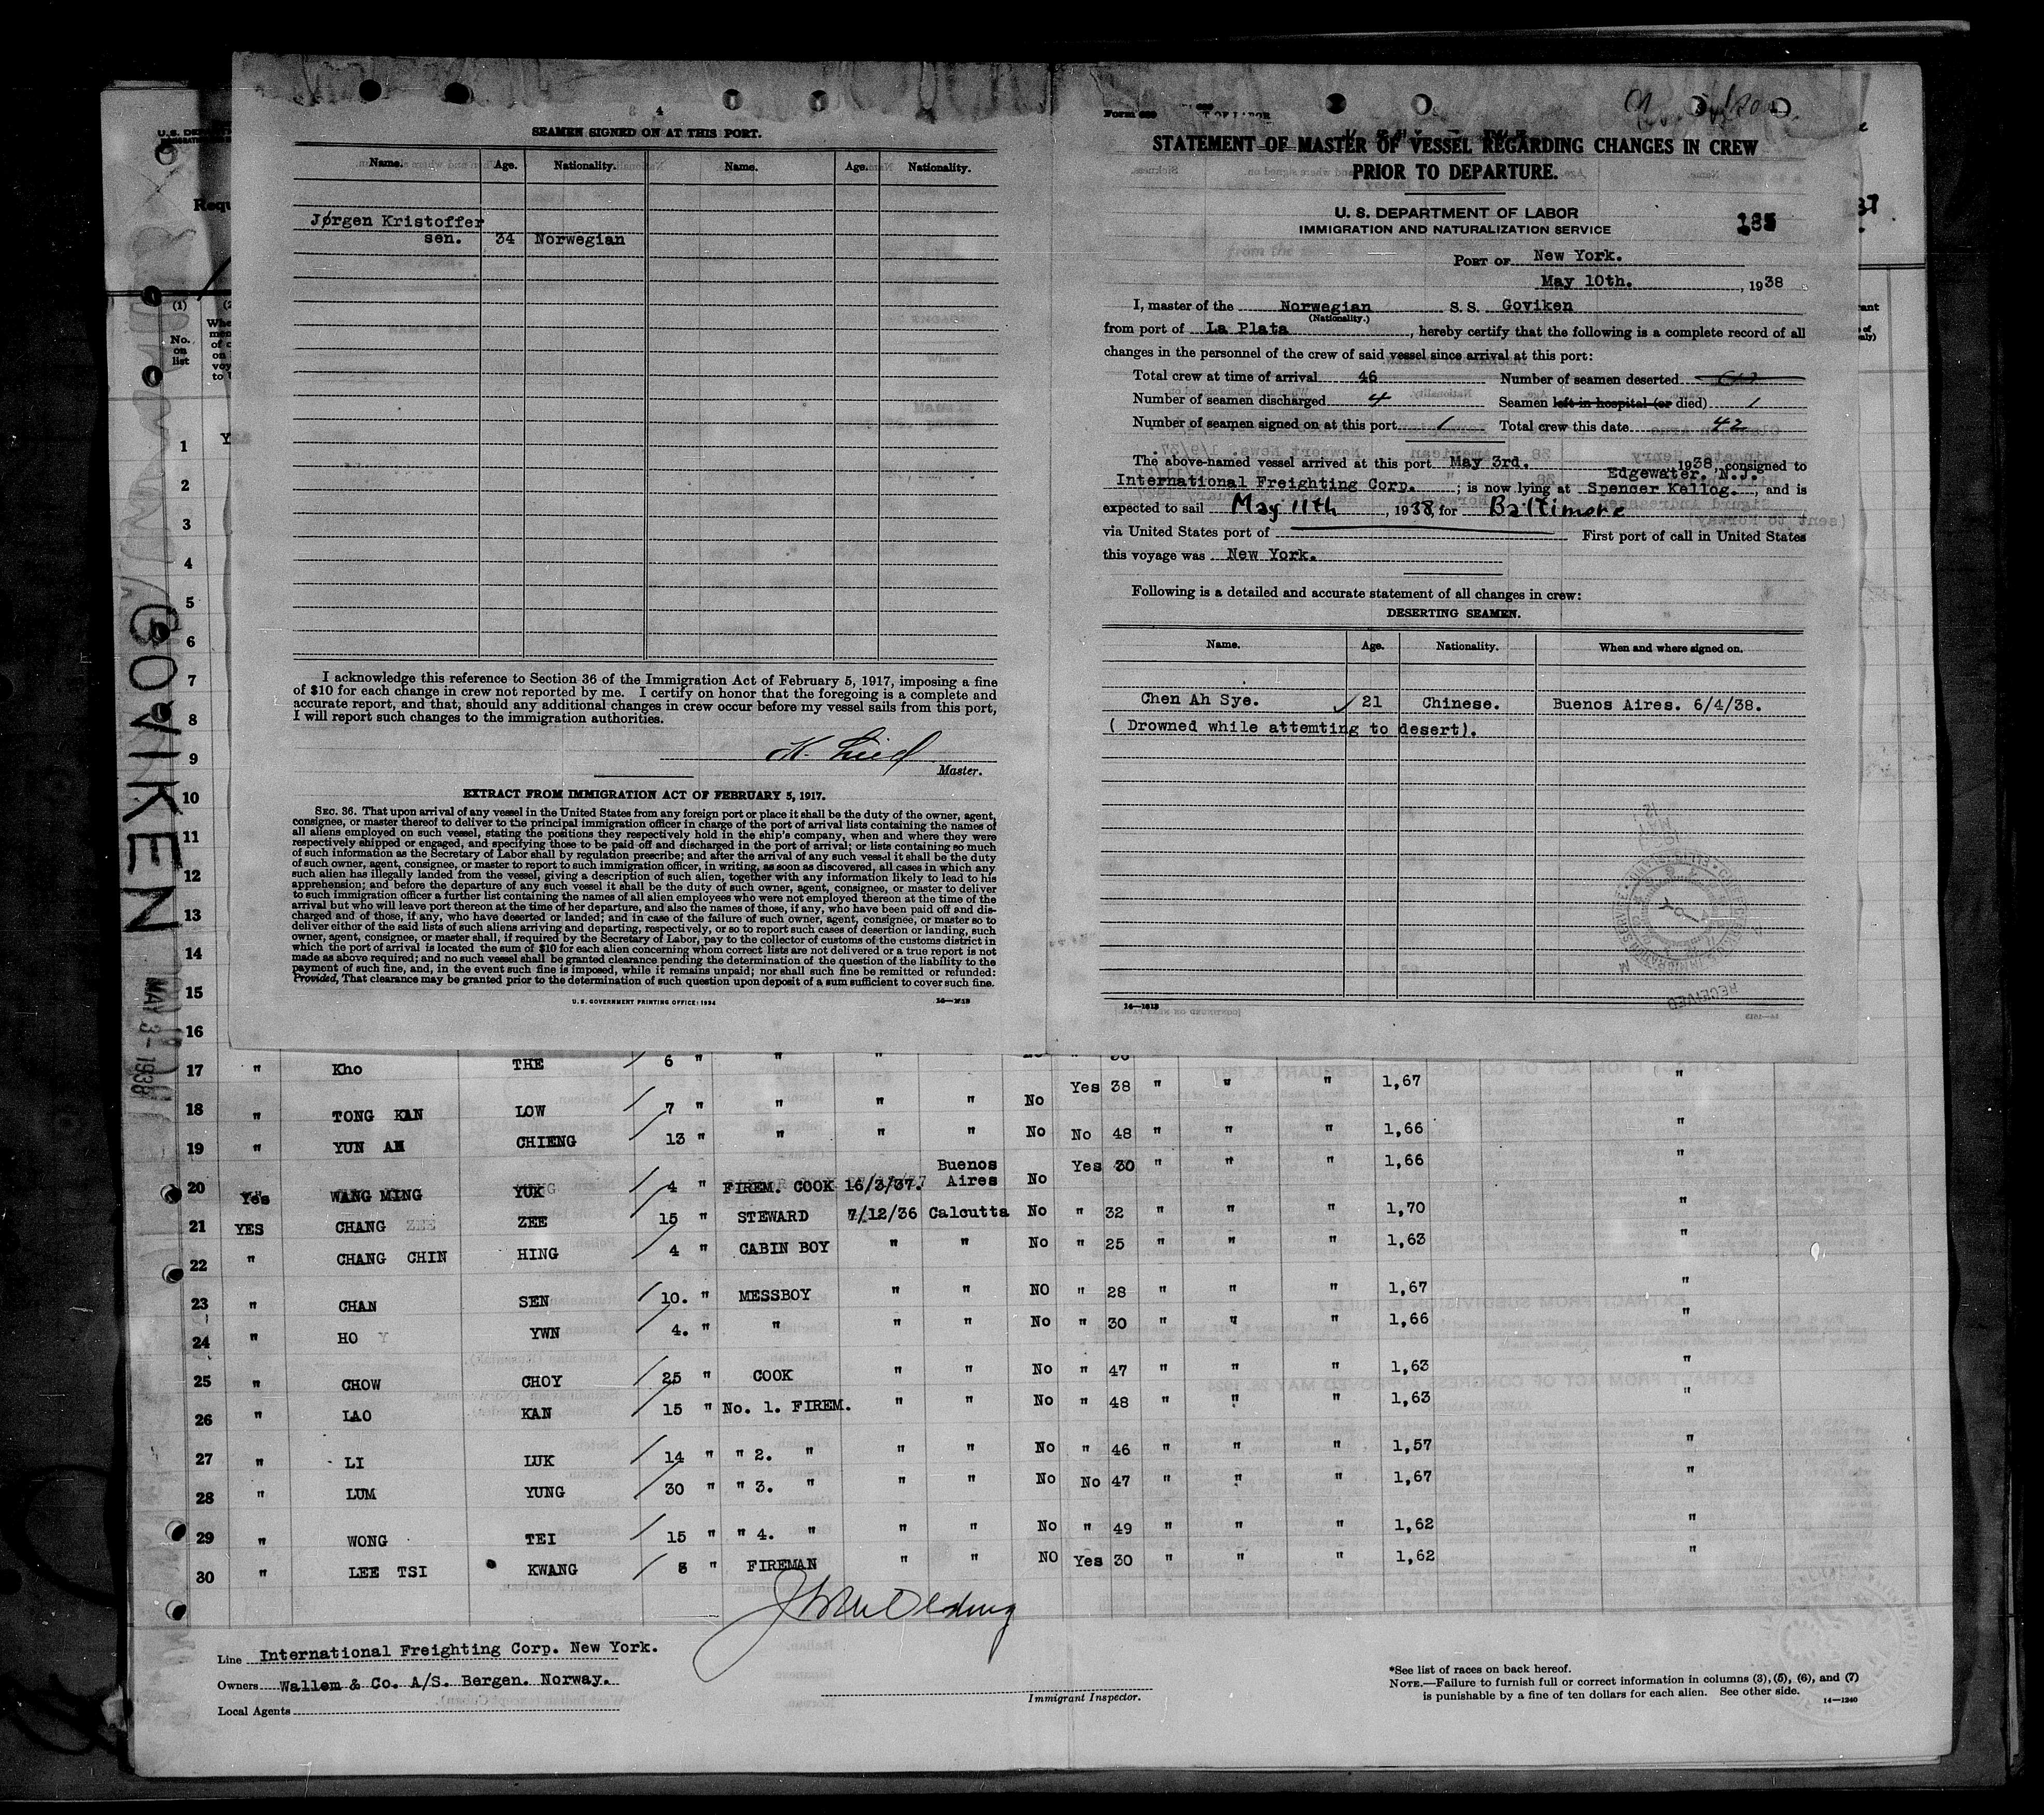 4
SEAMEN SIGNED ON AT THIS PORT.
Name. Age. Nationality. Name. Age. Nationality.
Jørgen Kristoffer
sen. 34 Norwegian
I acknowledge this reference to Section 36 of the Immigration Act of February 5, 1917, imposing a fine
of $10 for each change in crew not reported by me. I certify on honor that the foregoing is a complete and
accurate report, and that, should any additional changes in crew occur before my vessel sails from this port,
I will report such changes to the immigration authorities.
Master.
EXTRACT FROM IMMIGRATION ACT OF FEBRUARY 5, 1917.
SEC. 36. That upon arrival of any vessel in the United States from any foreign port or place it shall be the duty of the owner, agent,
consignee, or master thereof to deliver to the principal immigration officer in charge of the port of arrival lists containing the names of
all aliens employed on such vessel, stating the positions they respectively hold in the ship's company, when and where they were
respectively shipped or engaged, and specifying those to be paid off and discharged in the port of arrival; or lists containing so much
of such information as the Secretary of Labor shall by regulation prescribe; and after the arrival of any such vessel it shall be the duty
of such owner, agent, consignee, or master to report to such immigration officer, in writing, as soon as discovered, all cases in which any
such alien has illegally landed from the vessel, giving a description of such alien, together with any information likely to lead to his
apprehension; and before the departure of any such vessel it shall be the duty of such owner, agent, consignee, or master to deliver
to such immigration officer a further list containing the names of all alien employees who were not employed thereon at the time of the
arrival but who will leave port thereon at the time of her departure, and also the names of those, if any, who have been paid off and dis-
charged and of those, if any, who have deserted or landed; and in case of the failure of such owner, agent, consignee, or master so to
deliver either of the said lists of such aliens arriving and departing, respectively, or so to report such cases of desertion or landing, such
owner, agent, consignee, or master shall, if required by the Secretary of Labor, pay to the collector of customs of the customs district in
which the port of arrival is located the sum of $10 for each alien concerning whom correct lists are not delivered or a true report is not
made as above required; and no such vessel shall be granted clearance pending the determination of the question of the liability to the
payment of such fine, and, in the event such fine is imposed, while it remains unpaid; nor shall such fine be remitted or refunded:
Provided, That clearance may be granted prior to the determination of such question upon deposit of a sum sufficient to cover such fine.
U. S. GOVERNMENT PRINTING OFFICE: 1934
Form 689
STATEMENT OF MASTER OF VESSEL REGARDING CHANGES IN CREW
PRIOR TO DEPARTURE.
U. S. DEPARTMENT OF LABOR
IMMIGRATION AND NATURALIZATION SERVICE
PORT OF New York.
May 10th. , 1938
I, master of the Norwegian S. S. Goviken
(Nationality.)
from port of La Plata , hereby certify that the following is a complete record of all
changes in the personnel of the crew of said vessel since arrival at this port:
Total crew at time of arrival 46 Number of seamen deserted
Number of seamen discharged 4 Seamen left in hospital (or died) 1
Number of seamen signed on at this port 1 Total crew this date 42
The above-named vessel arrived at this port May 3rd. 1938, consigned to
Edgewater. N.J.
International Freighting Corp. ; is now lying at Spencer Kellog. , and is
expected to sail May 11th , 1938, for Baltimore
via United States port of First port of call in United States
this voyage was New York.
Following is a detailed and accurate statement of all changes in crew:
DESERTING SEAMEN.
Name. Age. Nationality. When and where signed on.
Chen Ah Sye. 21 Chinese. Buenos Aires. 6/4/38.
( Drowned while attemting to desert).
14—1613
RECEIVED
GOVIKEN
MAY 3 - 1938
(1)
No.
on
list
1
2
3
4
5
6
7
8
9
10
11
12
13
14
15
16
17 " Kho THE 6 " " "
18 " TONG KAN LOW 7 " " " " No Yes 38 " " " 1,67 "
19 " YUN AH CHIENG 13 " " " " No No 48 " " " 1,66 "
20 Yes WANG MING YUK 4 " FIREM. COOK 16/3/37. Buenos Aires No Yes 30 " " " 1,66 "
21 YES CHANG ZEE 15 " STEWARD 7/12/36 Calcutta No " 32 " " " 1,70 "
22 " CHANG CHIN HING 4 " CABIN BOY " " No " 25 " " " 1,63 "
23 " CHAN SEN 10. " MESSBOY " " NO " 28 " " " 1,67 "
24 " HO YWN 4. " " " " No " 30 " " " 1,66 "
25 " CHOW CHOY 25 " COOK " " No " 47 " " " 1,63 "
26 " LAO KAN 15 " No. 1. FIREM. " " No " 48 " " " 1,63 "
27 " LI LUK 14 " " 2. " " " No " 46 " " " 1,57 "
28 " LUM YUNG 30 " " 3. " " " No No 47 " " " 1,67 "
29 " WONG TEI 15 " " 4. " " " No " 49 " " " 1,62 "
30 " LEE TSI KWANG " FIREMAN " " NO Yes 30 " " " 1,62 "
Line International Freighting Corp. New York.
Owners Wallem & Co. A/S. Bergen. Norway.
Local Agents
Immigrant Inspector.
*See list of races on back hereof.
NOTE.—Failure to furnish full or correct information in columns (3), (5), (6), and (7)
is punishable by a fine of ten dollars for each alien. See other side.
14—1240